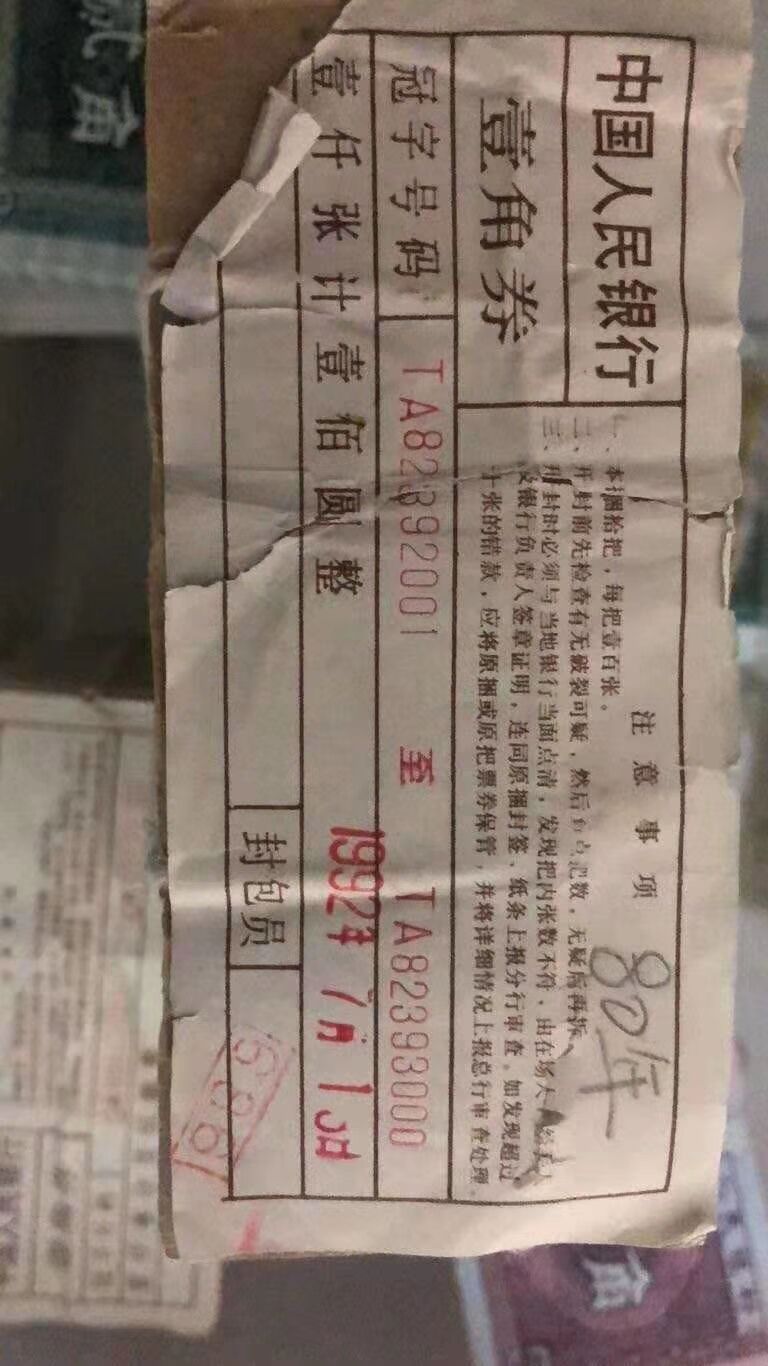 中国人民银行
壹角券
注意事项
一、本捆拾把，每把壹百张。
二、开封前先检查有无破裂可疑，然后点把数，无疑后再拆
三、开封时必须与当地银行当面点清，发现把内张数不符，由在场人
及银行负责人签章证明，连同原捆封签、纸条上报分行审查。如发现超过
十张的错款，应将原捆或原把票券保管，并将详细情况上报总行审查处理
80年
冠字号码 TA82392001 至 TA82393000
壹仟张计壹佰圆整 1992年7月1日
封包员 580
贰角
角